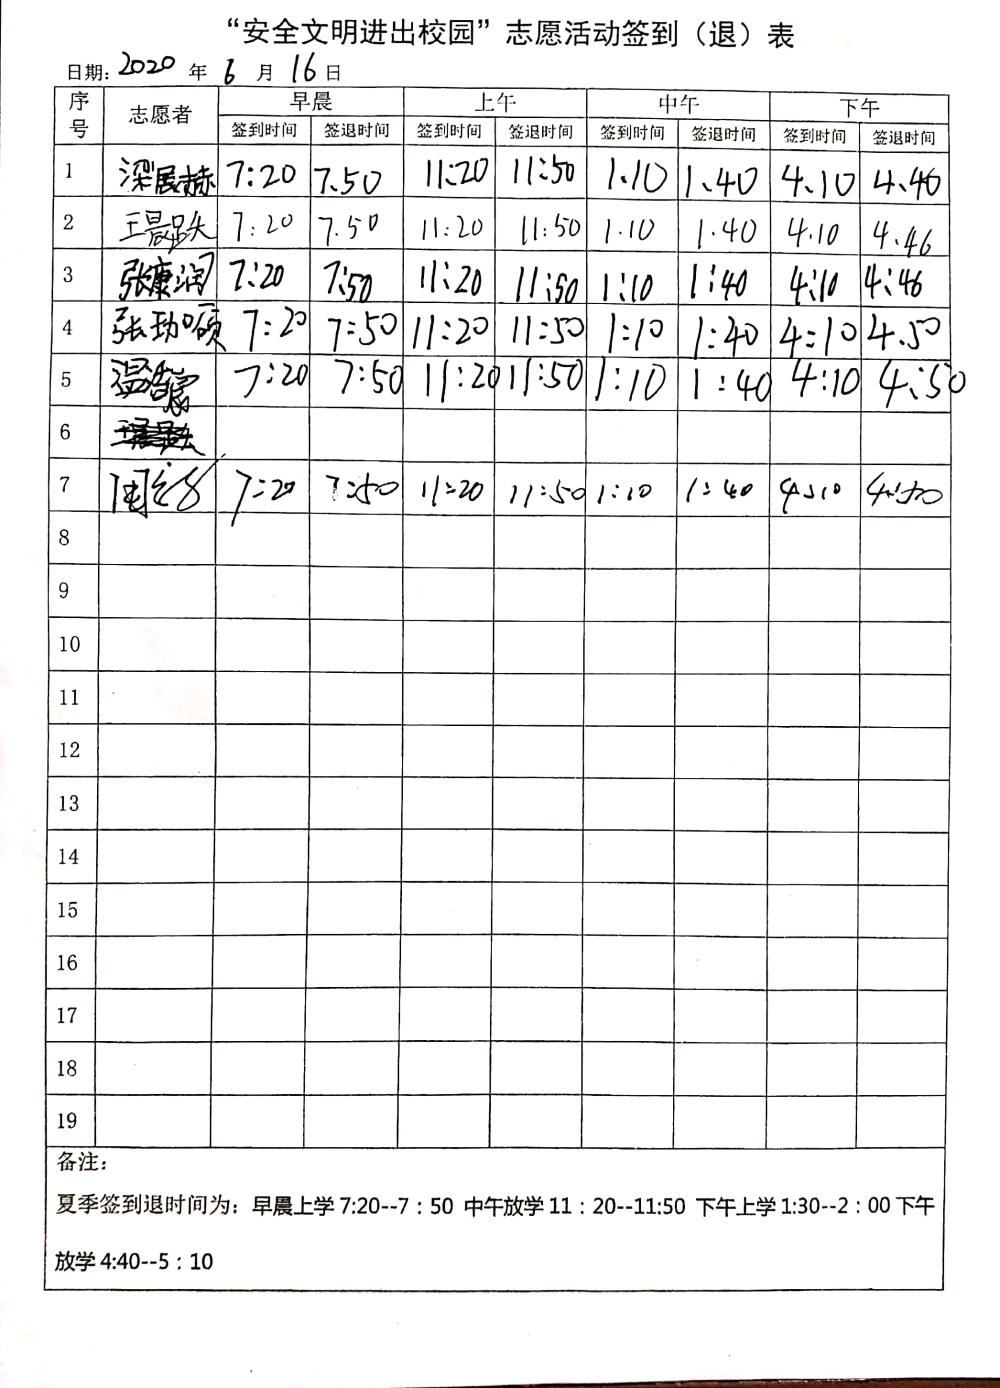 “安全文明进出校园”志愿活动签到（退）表
日期：2020 年 6 月 16 日
序号 志愿者 早晨 上午 中午 下午
签到时间 签退时间 签到时间 签退时间 签到时间 签退时间 签到时间 签退时间
1 梁展赫 7:20 7.50 11:20 11:50 1.10 1.40 4.10 4.46
2 王晨 7:20 7.50 11:20 11:50 1.10 1.40 4.10 4.46
3 张康润 7:20 7:50 11:20 11:50 1:10 1:40 4:10 4:46
4 张 硕 7:20 7:50 11:20 11:50 1:10 1:40 4:10 4.50
5 温 7:20 7:50 11:20 11:50 1:10 1:40 4:10 4:50
6
7 7:20 7:50 11:20 11:50 1:10 1:40 4:10 4:50
8
9
10
11
12
13
14
15
16
17
18
19
备注：
夏季签到退时间为：早晨上学 7:20--7：50 中午放学 11：20--11:50 下午上学 1:30--2：00 下午
放学 4:40--5：10